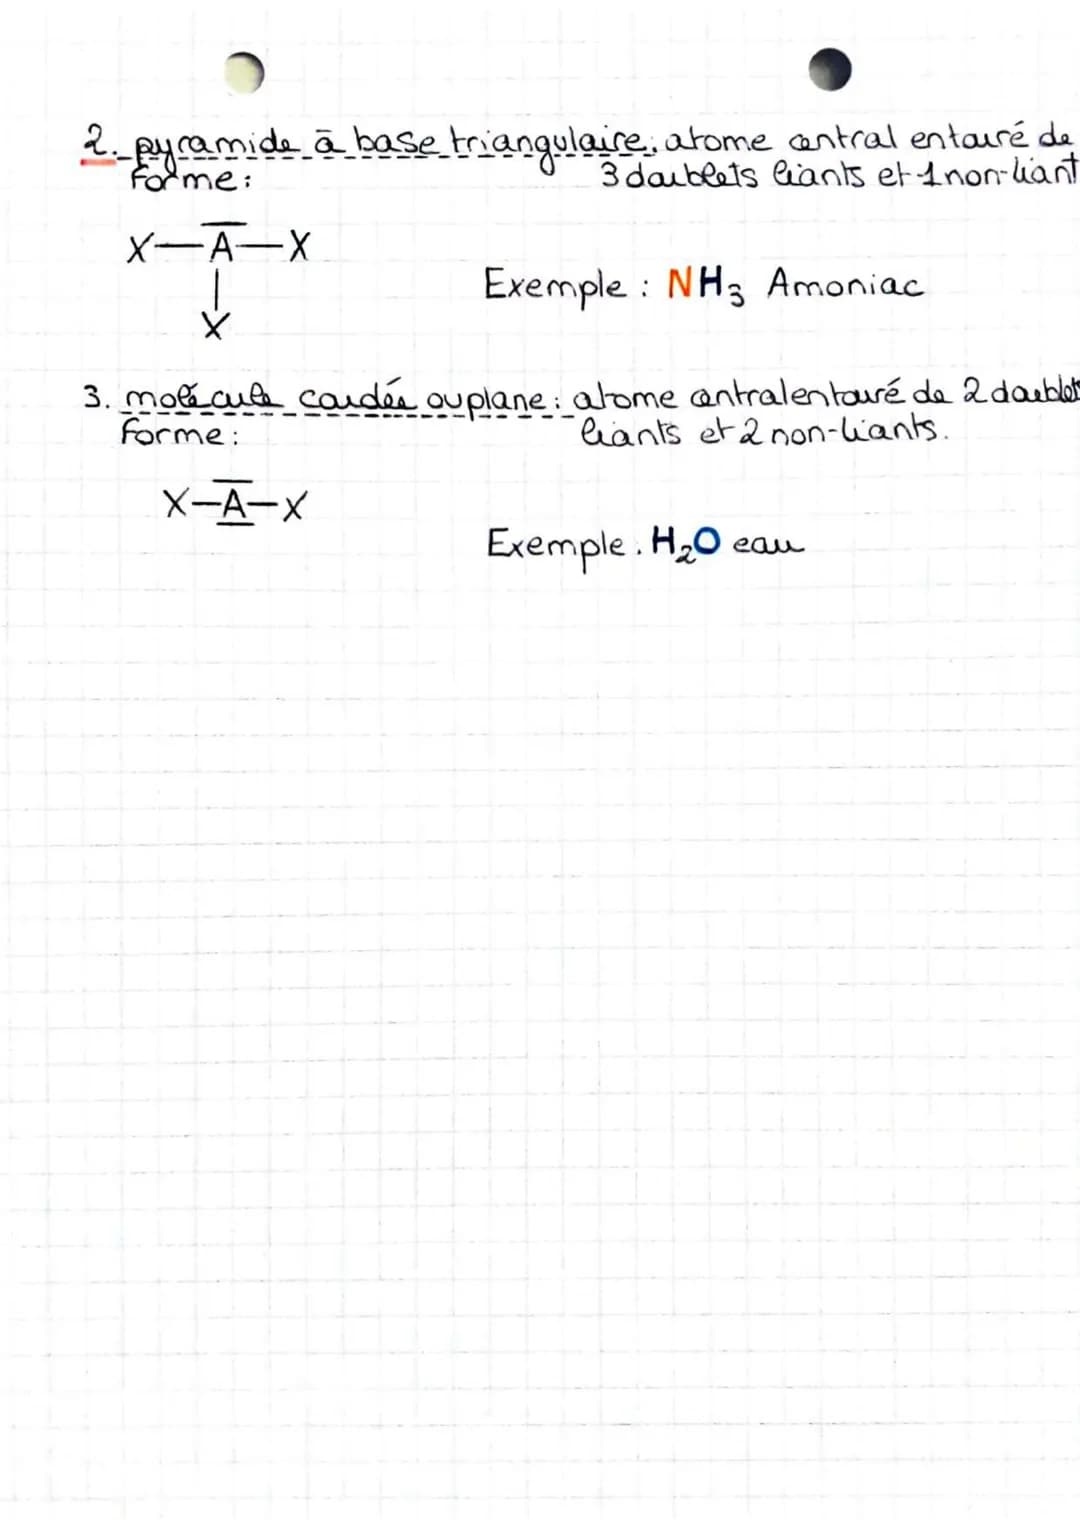 2. pyramide à base triangulaire: atome central entouré de
forme: 3 doublets liants et 1 non-liant
X—A—X
|
X
Exemple : NH₃ Amoniac
3. molécule coudée ou plane: atome central entouré de 2 doublets
forme: liants et 2 non-liants.
X—A—X
Exemple: H₂O eau